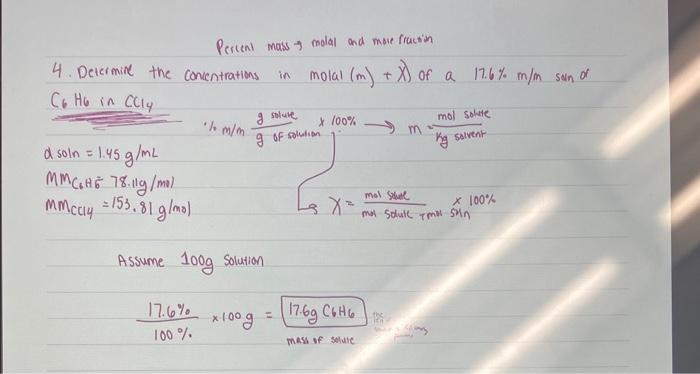 Percent mass → molal and mole fraction
4. Determine the concentrations in molal (m) + X) of a 17.6% m/m soln of
C6H6 in CCl4
% m/m g solute / g of solution x 100% → m = mol solute / kg solvent
d soln = 1.45 g/mL
MM C6H6 = 78.11g/mol
MM CCl4 = 153.81 g/mol
X = mol solute / mol solute + mol soln x 100%
Assume 100g solution
17.6% / 100% x 100g = 17.6g C6H6
mass of solute